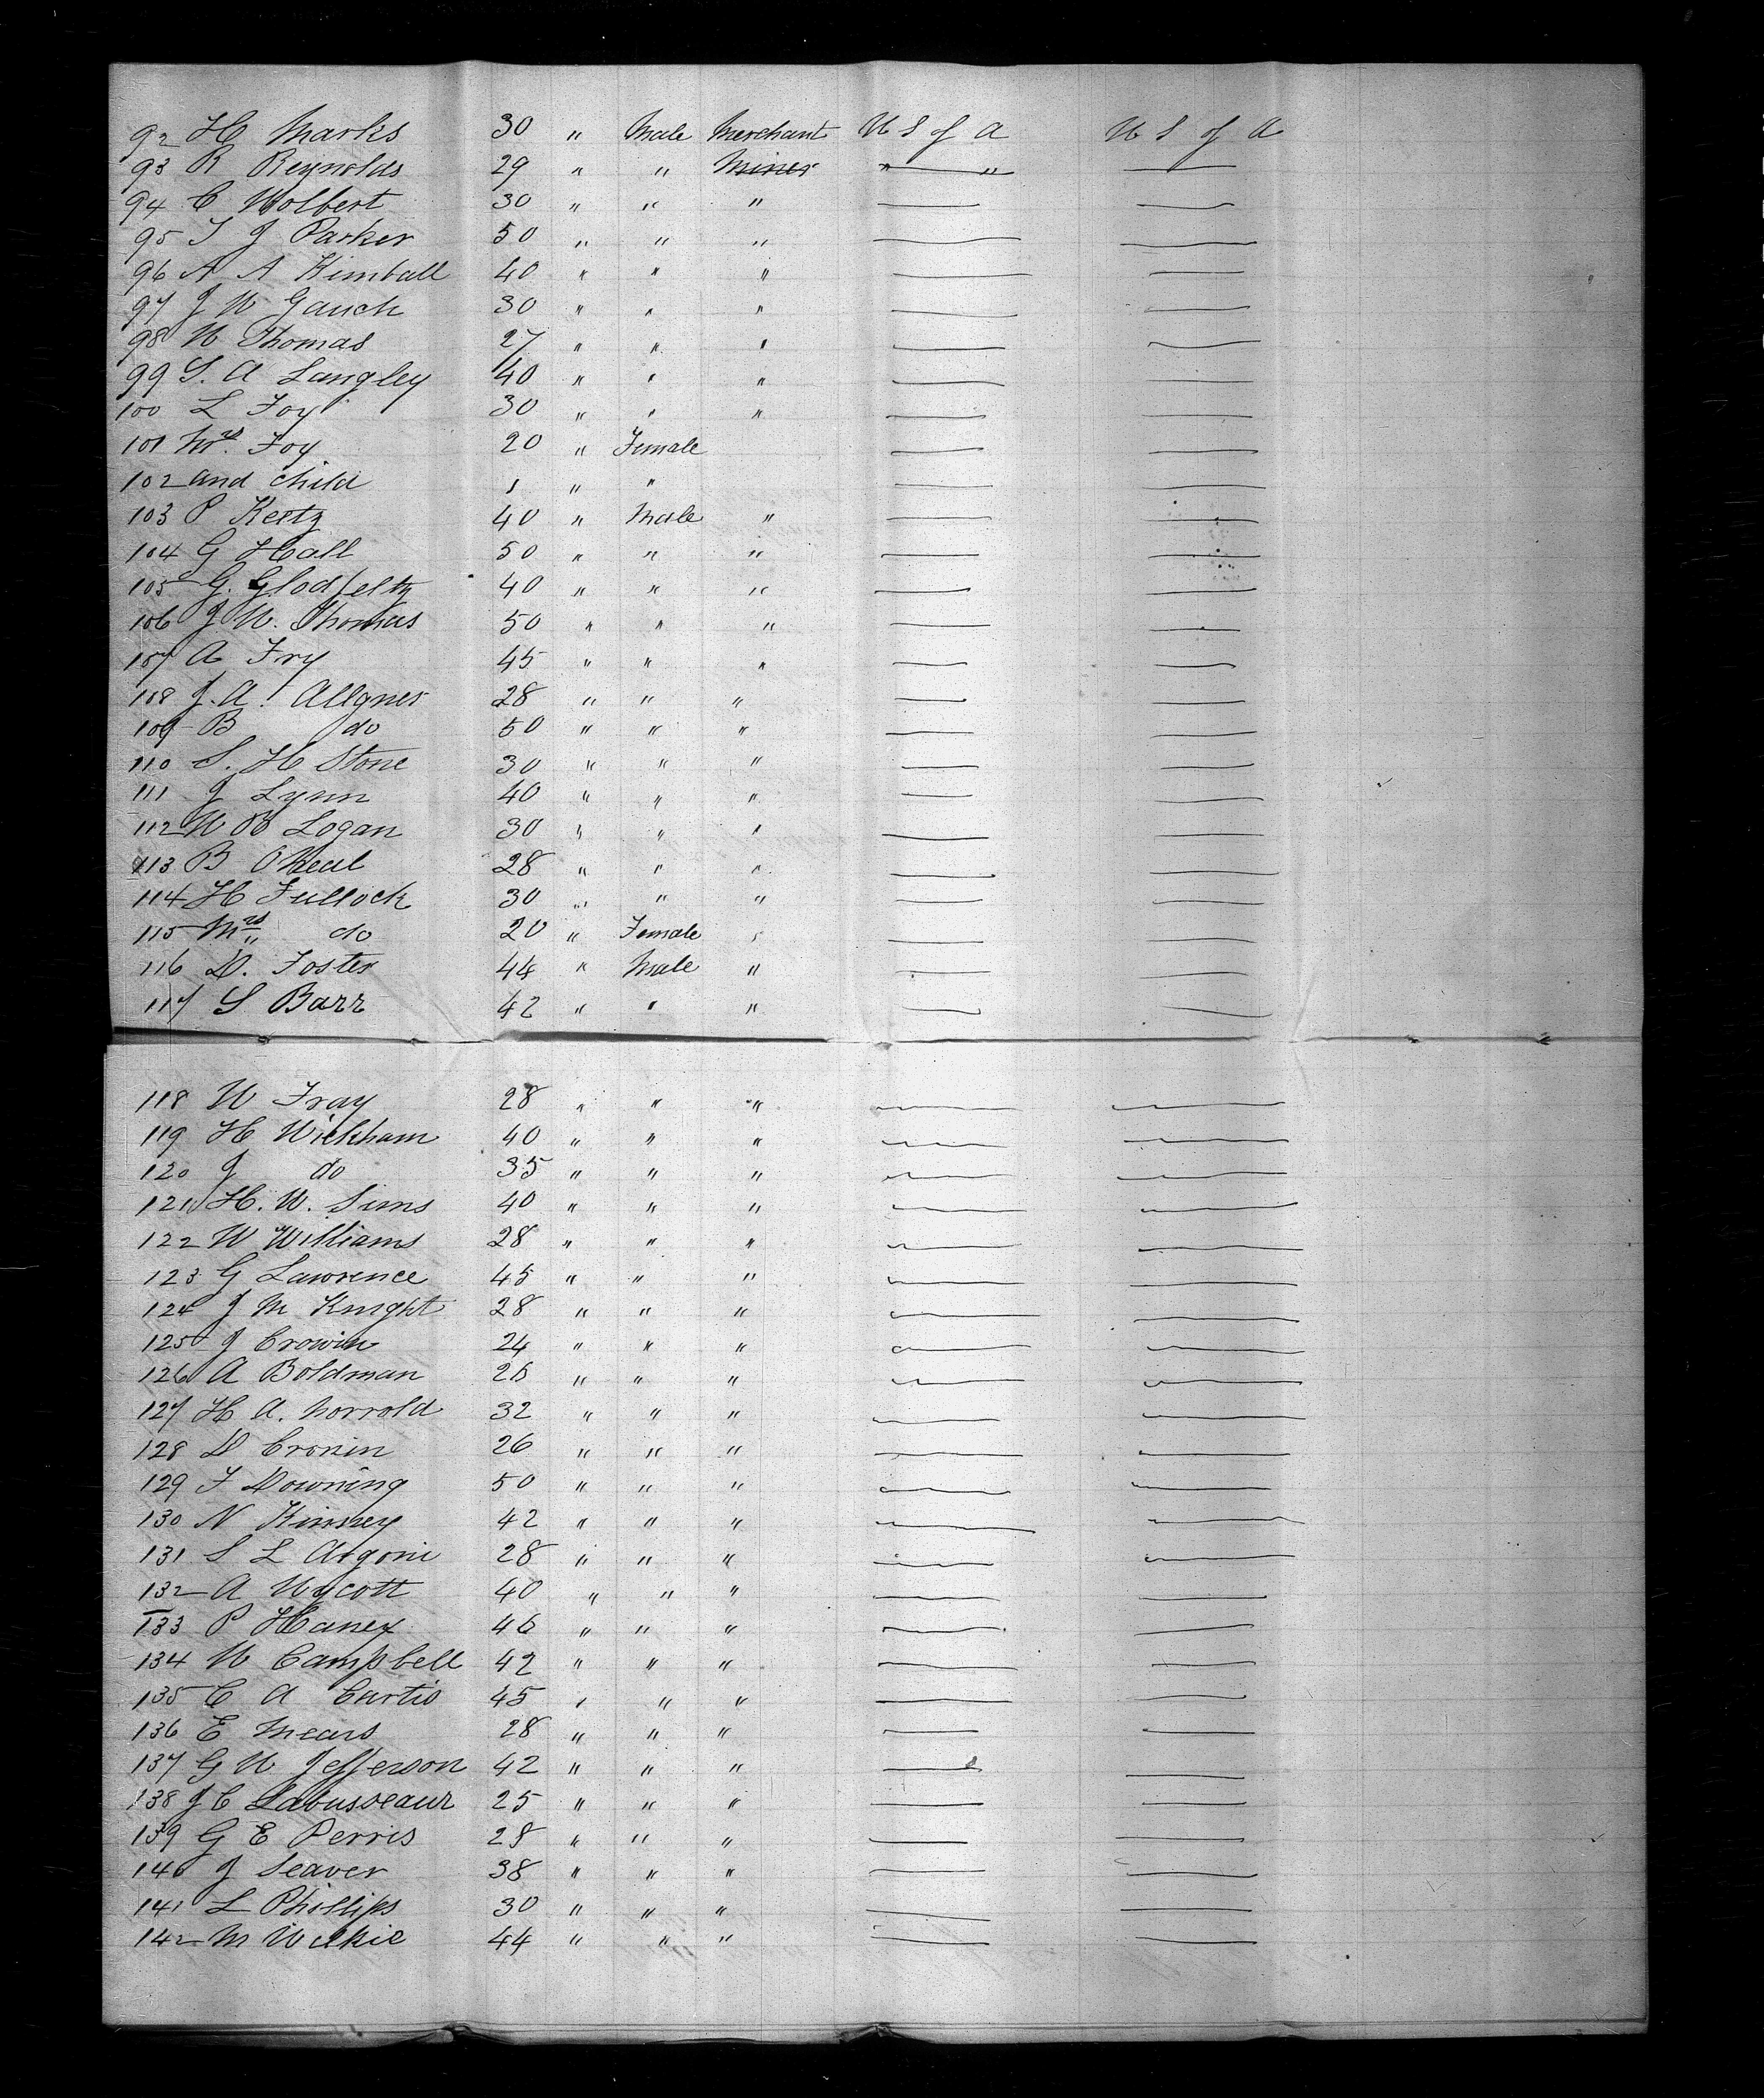 92 H Marks 30 " Male Merchant U S of A U S of A
93 R Reynolds 29 " " Miner " "
94 C Wolbert 30 " " "
95 T J Parker 50 " " "
96 A A Kimball 40 " " "
97 J W Gauch 30 " " "
98 W Thomas 27 " " "
99 S. A Langley 40 " " "
100 L Foy 30 " " "
101 Mrs. Foy 20 " Female
102 and child 1 " "
103 P Keitz 40 " Male "
104 G Hall 50 " " "
105 G. Glodfelty 40 " " "
106 J W. Thomas 50 " " "
107 A Fry 45 " " "
108 J. A. Allgner 28 " " "
109 B do 50 " " "
110 S. H Stone 30 " " "
111 J Lynn 40 " " "
112 W B Logan 30 " " "
113 B ONeal 28 " " "
114 H Fullock 30 " " "
115 Mrs " do 20 " Female "
116 D. Foster 44 " Male "
117 S Barr 42 " " "
118 W Fray 28 " " "
119 H Wickham 40 " " "
120 J do 35 " " "
121 H. W. Sims 40 " " "
122 W Williams 28 " " "
123 G Lawrence 45 " " "
124 J M Knight 28 " " "
125 J Crowin 24 " " "
126 A Boldman 26 " " "
127 H A. Norrold 32 " " "
128 D Cronin 26 " " "
129 F Downing 50 " " "
130 N Kinney 42 " " "
131 S L " " "
132 A Wycott 40 " " "
133 P Haney 46 " " "
134 W Campbell 42 " " "
135 C A Curtis 45 " " "
136 E Mears 28 " " "
137 G W Jefferson 42 " " "
138 J C Labusseaur 25 " " "
139 G E Perris 28 " " "
140 J Seaver 38 " " "
141 L Phillips 30 " " "
142 M Wilkie 44 " " "